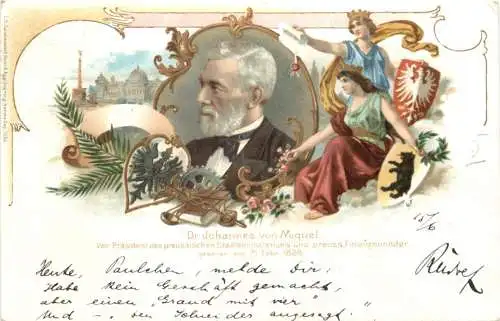 Dr. Johannes von Miquel
Vice-Präsident des preussischen Staatsministeriums und preuss. Finanzminister
geboren am
Febr. 1828
15/6
Heute, Paulchen, melde Dir:
Habe kein Geschäft gemacht,
aber einen "Grand mit vier"
Und — den Schneider angesagt!